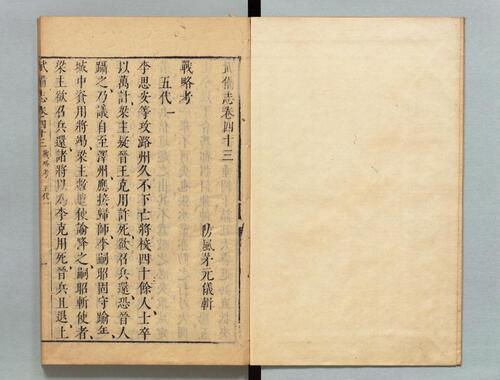 武備志卷四十三
防風茅元儀輯
戰略考
五代一
李思安等攻潞州久不下亡將校四十餘人士卒
以萬計梁主疑晉王克用詐死欲召兵還恐晉人
躡之乃議自至澤州應接歸師李嗣昭固守踰年
城中資用將竭梁主數遣使諭降之嗣昭斬使者
梁主欲召兵還諸將以為李克用死晉兵且退上
武備志卷四十三 戰略考 五代一 一